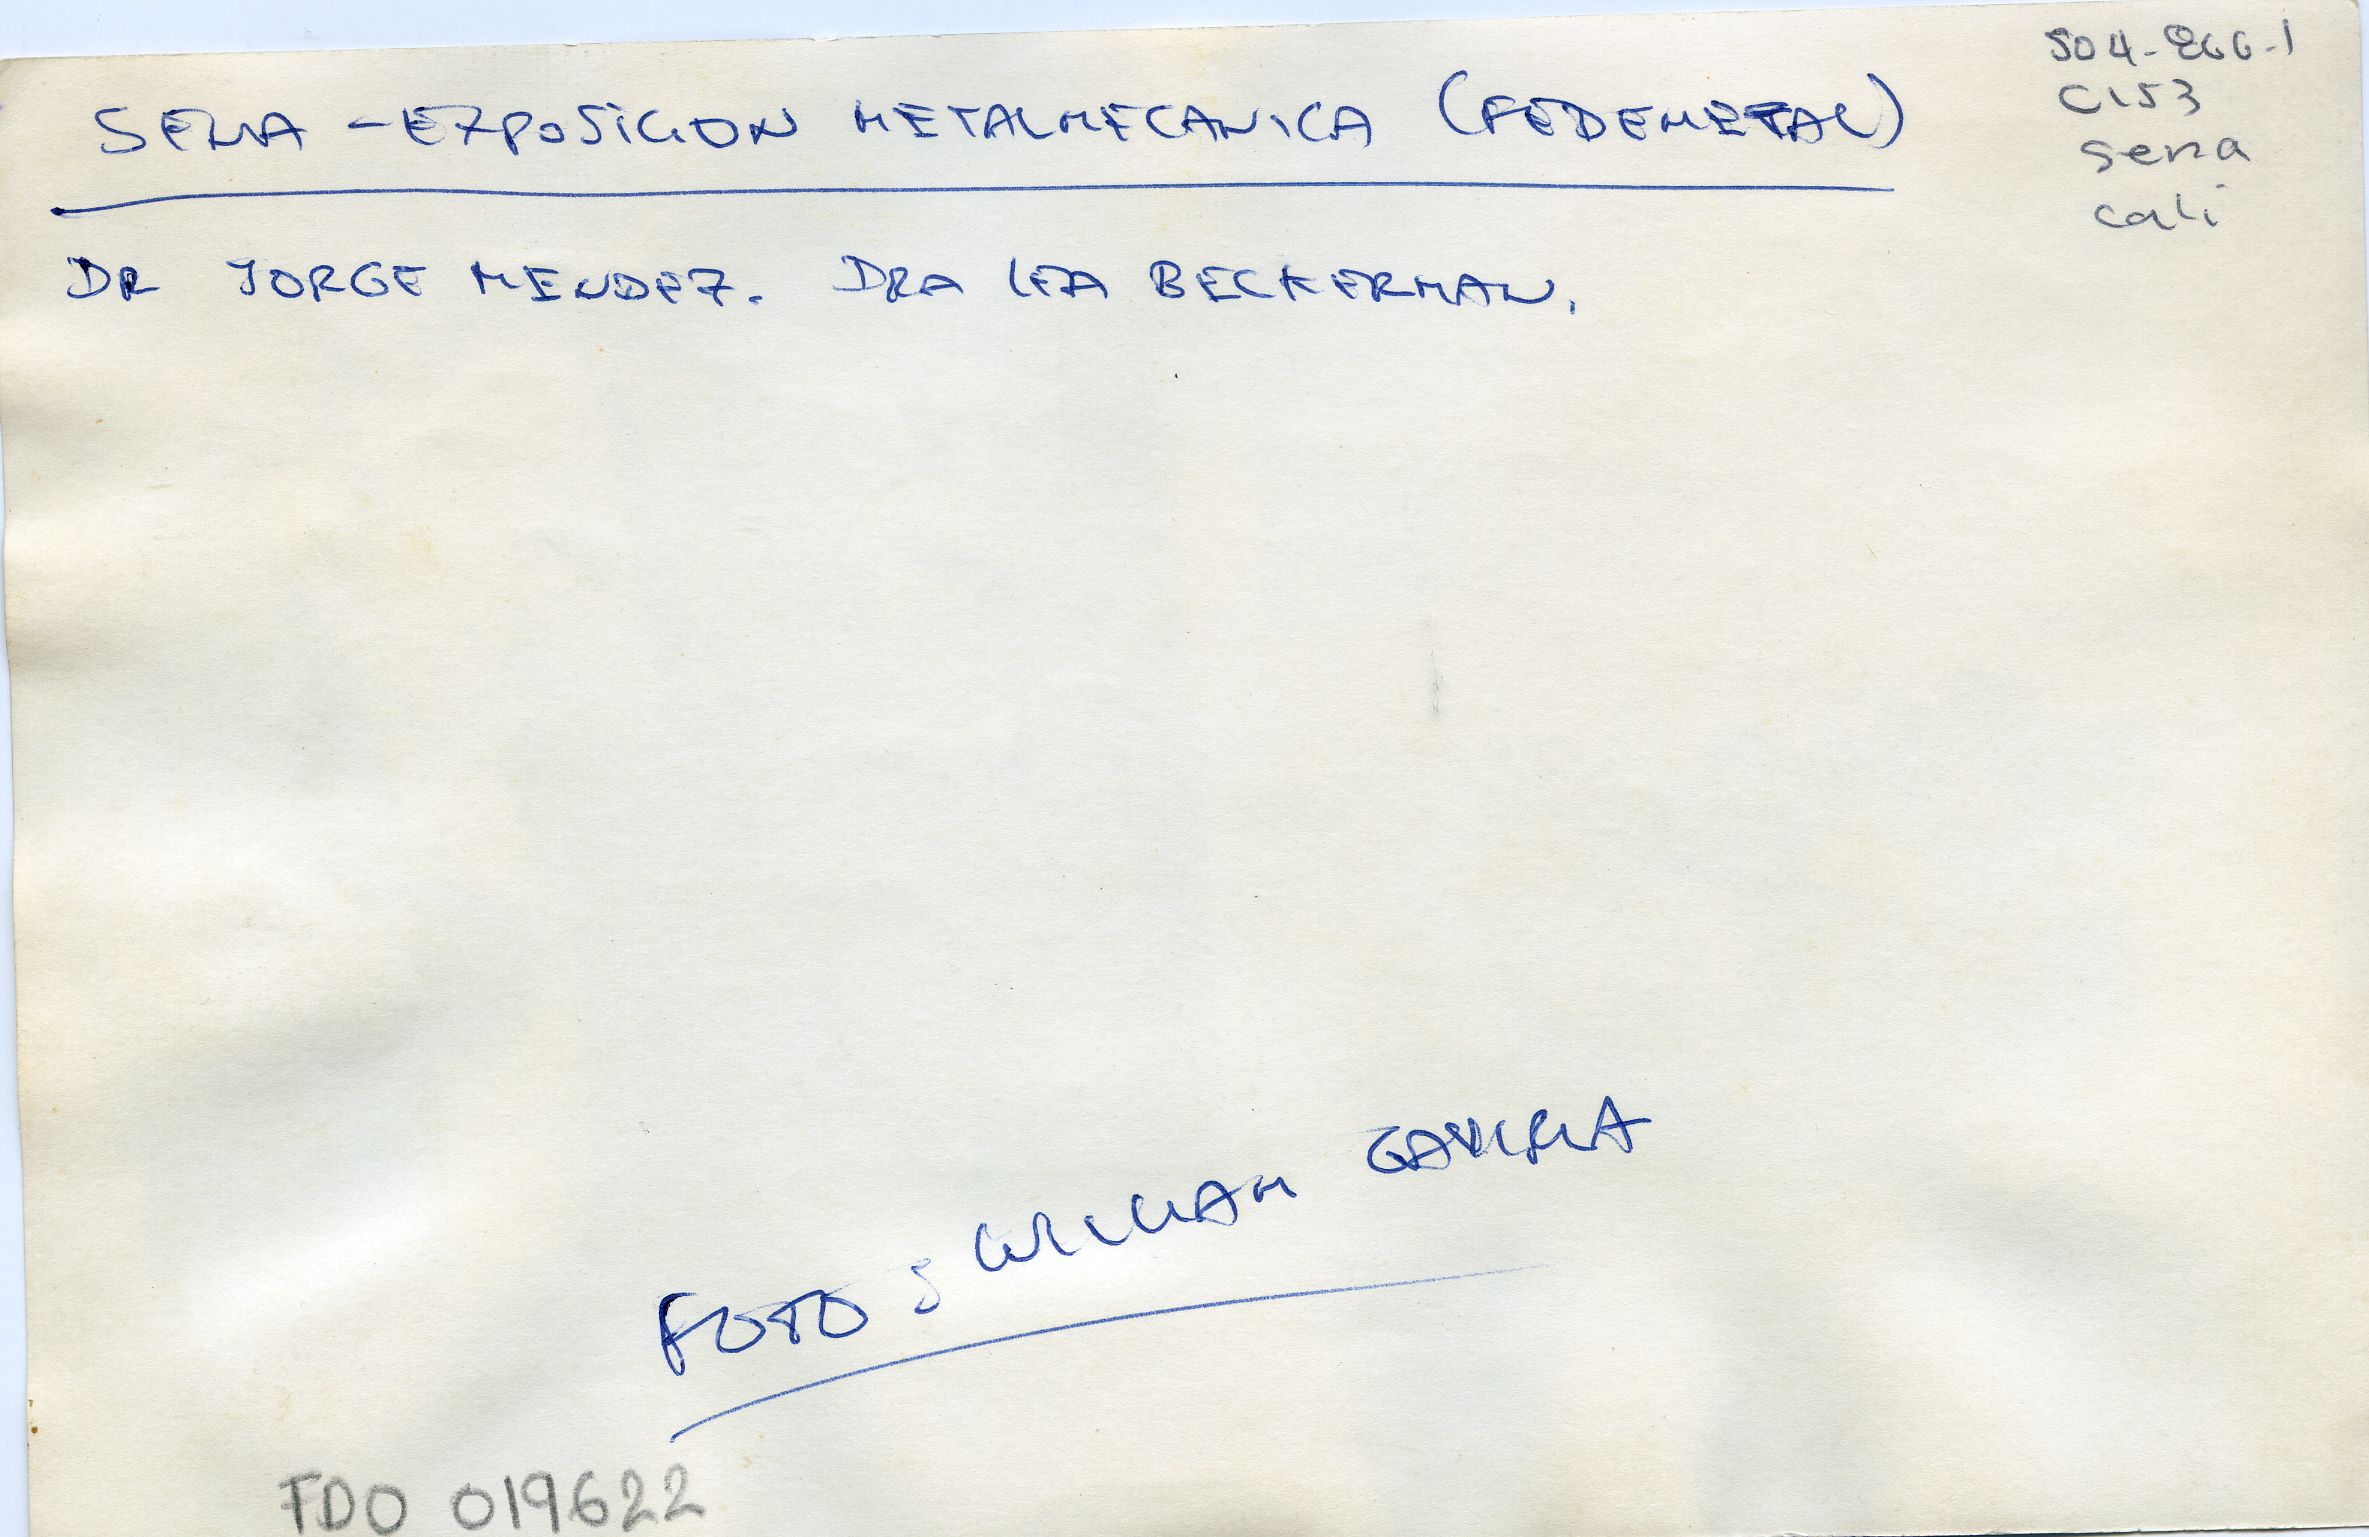 504-266-1
C153
sena
cali
SENA - EXPOSICION METALMECANICA (FEDEMETAL)
DR JORGE MENDEZ. DRA LEA BECKERMAN.
FOTOS WILLIAM GAVIRIA
FDO 019622